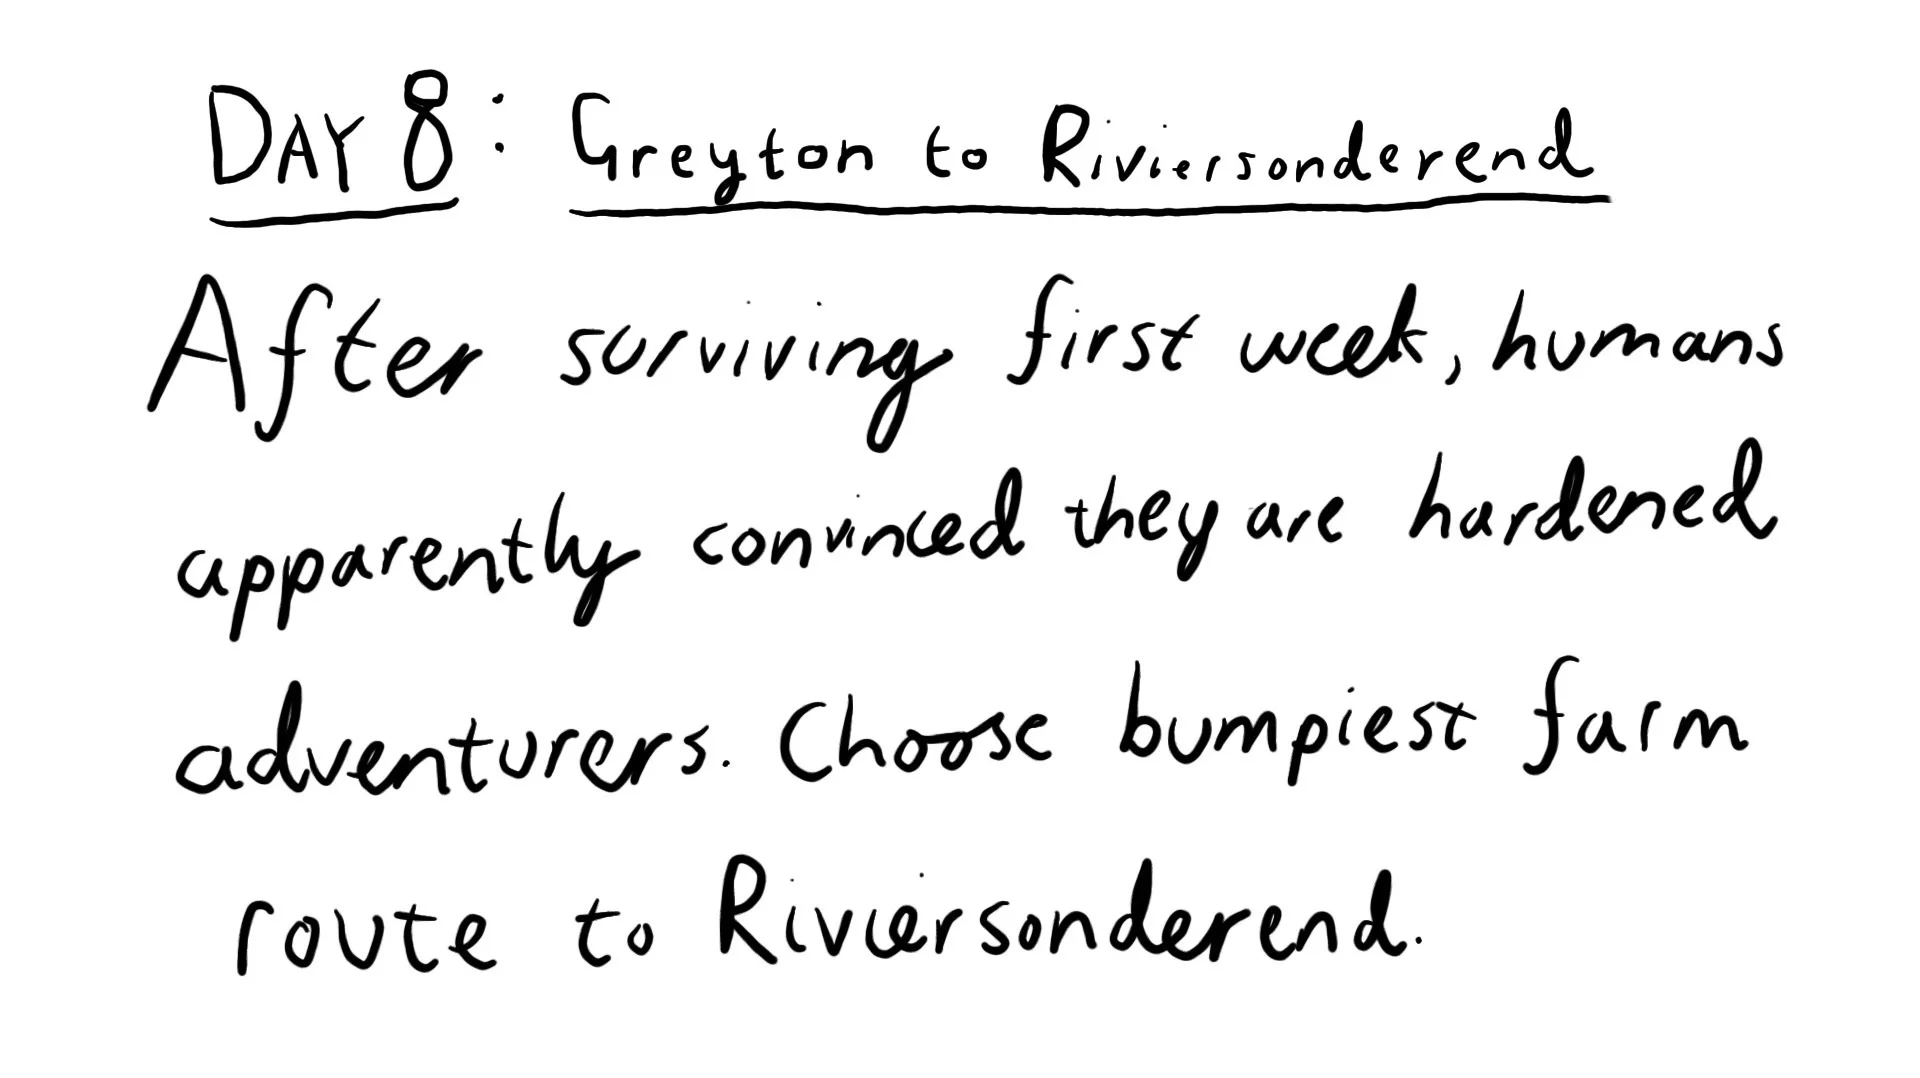 DAY 8: Greyton to Riviersonderend
After surviving first week, humans
apparently convinced they are hardened
adventurers. Choose bumpiest farm
route to Riviersonderend.